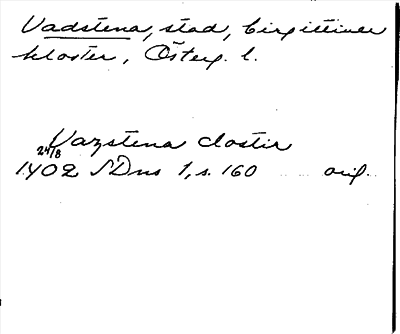 Vadstena, stad, birgittiner
kloster, Österg. l.
Vazstena closter
24/8
1402 SDns 1, s. 160 orig.